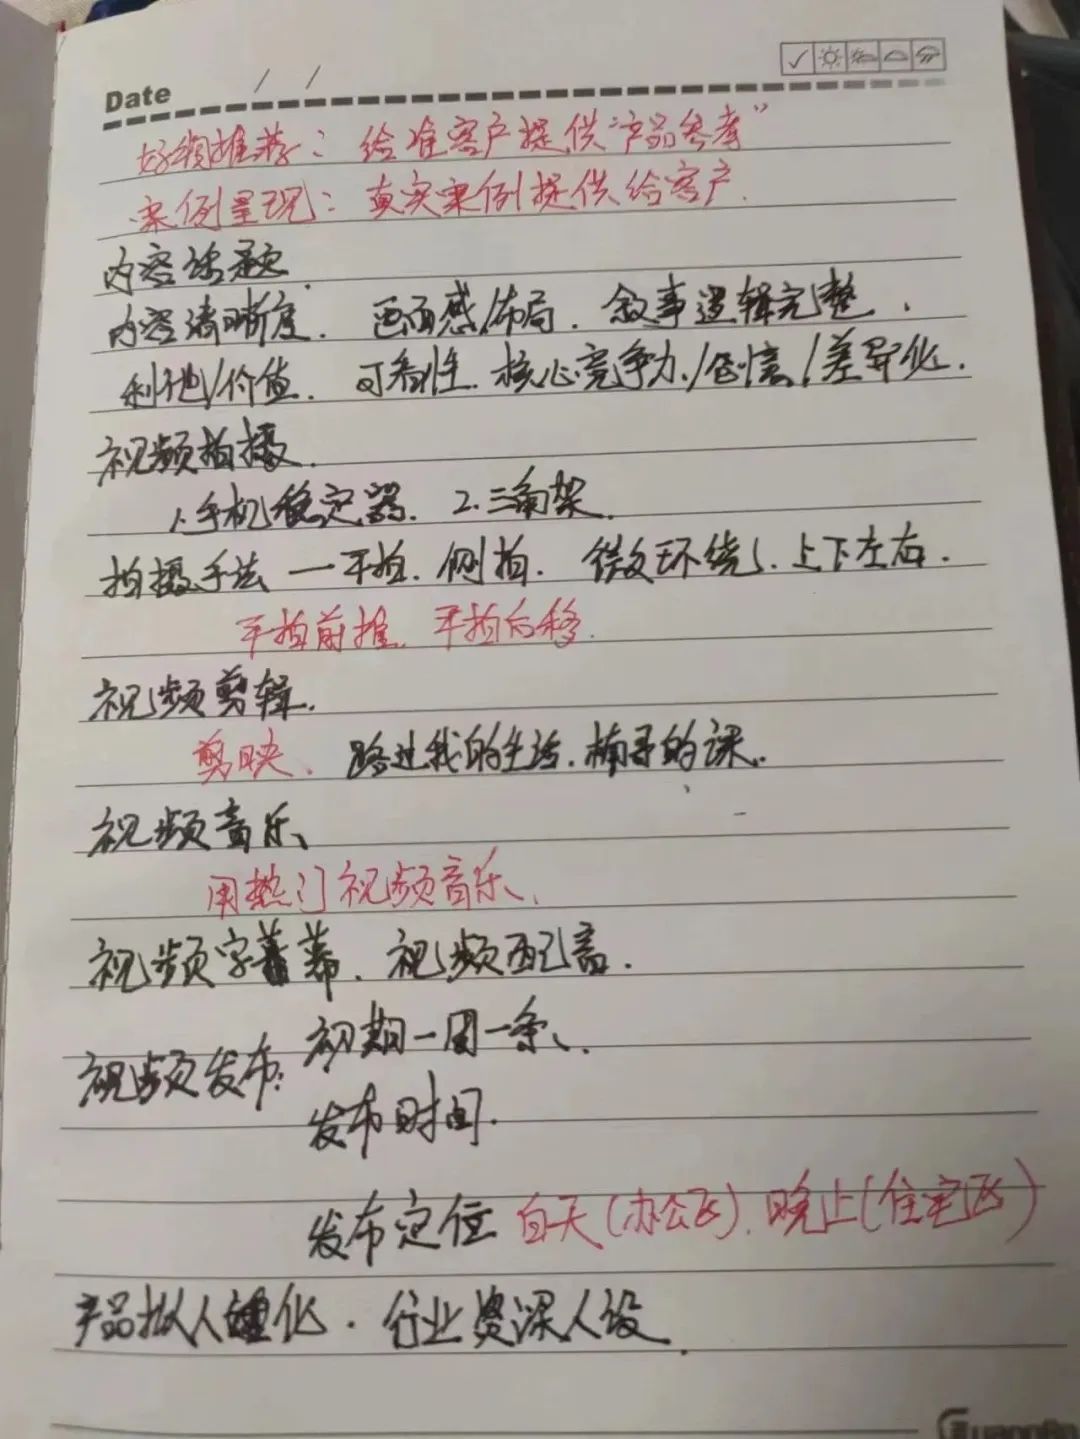 Date / /
好物推荐：给准客户提供“产品参考”
案例呈现：真实案例提供给客户.
内容话题.
内容清晰度. 画面感/布局. 叙事逻辑完整.
利他/价值. 可看性. 核心竞争力/色情/差异化.
视频拍摄.
1.手机稳定器. 2.三角架.
拍摄手法 一平拍. 侧拍. 微环绕. 上下左右.
平拍前推. 平拍后移.
视频剪辑.
剪映、路过我的生活.楠哥的课.
视频音乐、
用热门视频音乐、
视频字幕. 视频配音.
视频发布: 初期一周一条、
发布时间.
发布定位 白天(办公区).晚上(住宅区)
产品拟人化. 行业资深人设.